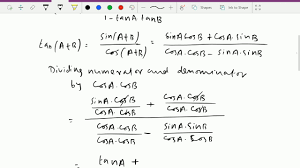 1 - tanA tanB
tan(A+B) = sin(A+B) / cos(A+B) = sinA cosB + cosA.sinB / cosA.cosB - sinA.sinB
Dividing numerator and denominator
by cosA.cosB
= sinA.cosB / cosA.cosB + cosA.sinB / cosA.cosB
cosA.cosB / cosA.cosB - sinA.sinB / cosA.cosB
= tanA +